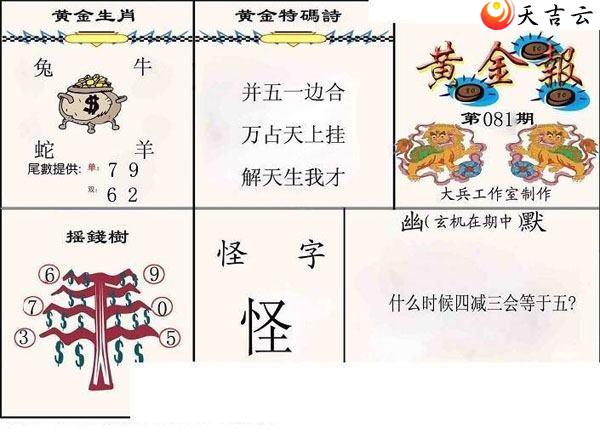 天吉云
黄金生肖
兔 牛
$
蛇 羊
尾數提供: 单: 7 9
双: 6 2
黄金特碼詩
并五一边合
万占天上挂
解天生我才
黄金報
第081期
大兵工作室制作
摇錢樹
6 9
7 0
3 5
$ $ $ $ $ $ $ $
怪 字
怪
幽(玄机在期中)默
什么时候四减三会等于五?